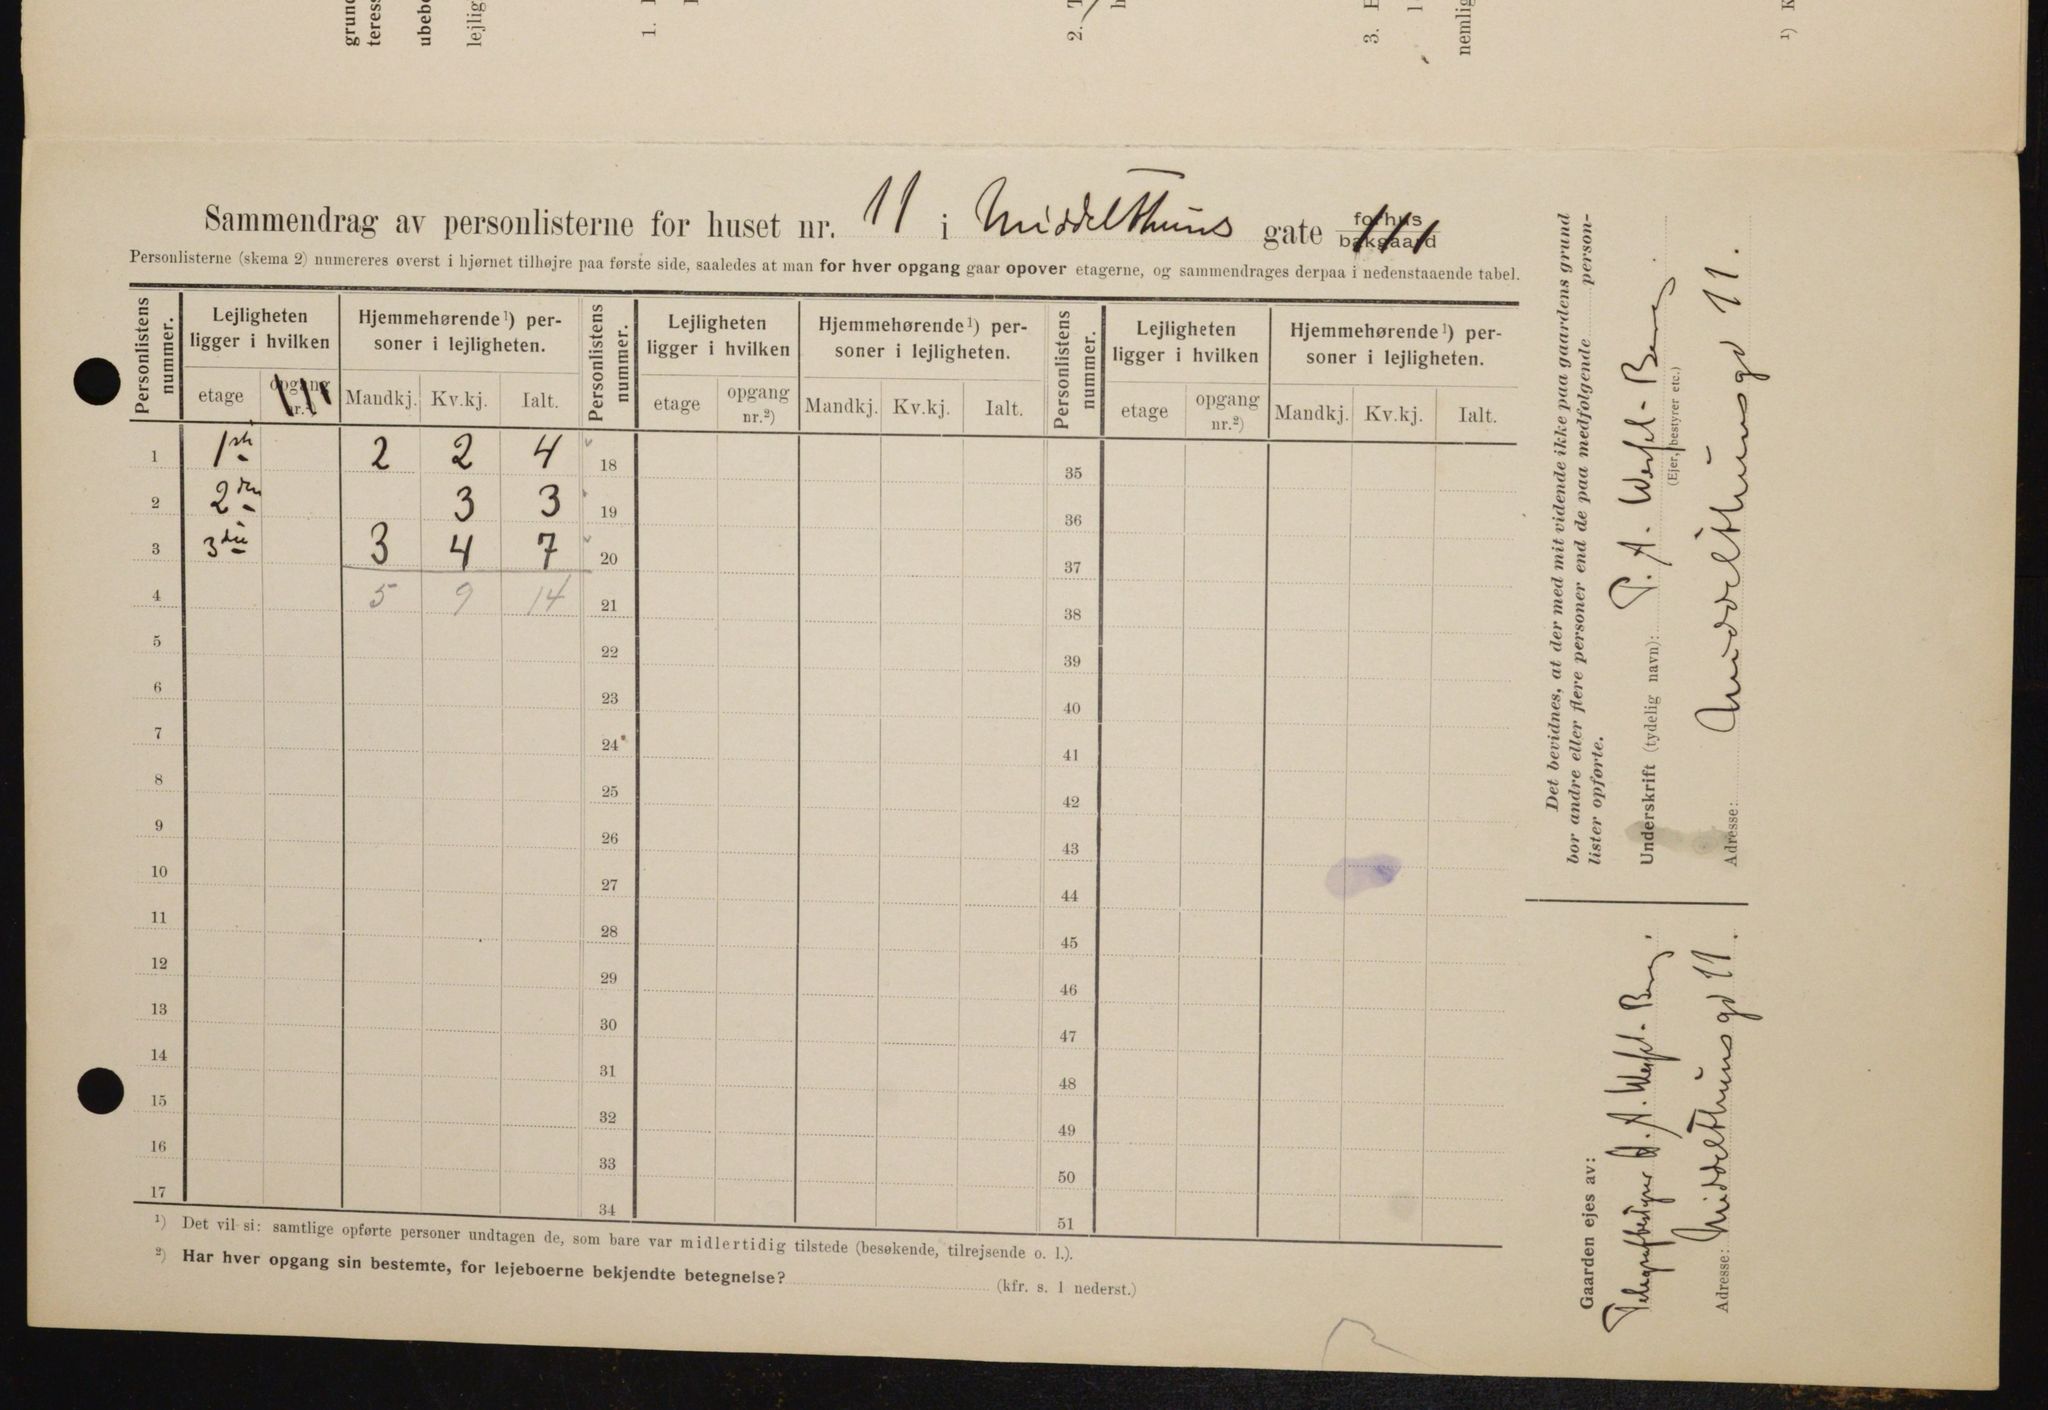 grund
teress
ubebo
lejlig
1.
2. T
h
3. E
nemlig
1) K
Sammendrag av personlisterne for huset nr. 11 i Middelthuns gate forhus bakgaard
Personlisterne (skema 2) numereres øverst i hjørnet tilhøjre paa første side, saaledes at man for hver opgang gaar opover etagerne, og sammendrages derpaa i nedenstaaende tabel.
Personlistens nummer. Lejligheten ligger i hvilken Hjemmehørende¹) personer i lejligheten. Personlistens nummer. Lejligheten ligger i hvilken Hjemmehørende¹) personer i lejligheten. Personlistens nummer. Lejligheten ligger i hvilken Hjemmehørende¹) personer i lejligheten.
etage opgang nr.²) Mandkj. Kv.kj. Ialt. etage opgang nr.²) Mandkj. Kv.kj. Ialt. etage opgang nr.²) Mandkj. Kv.kj. Ialt.
1 1ste 2 2 4 18 35
2 2den 3 3 19 36
3 3die 3 4 7 20 37
4 5 9 14 21 38
5 22 39
6 23 40
7 24 41
8 25 42
9 26 43
10 27 44
11 28 45
12 29 46
13 30 47
14 31 48
15 32 49
16 33 50
17 34 51
¹) Det vil si: samtlige opførte personer undtagen de, som bare var midlertidig tilstede (besøkende, tilrejsende o. l.).
²) Har hver opgang sin bestemte, for lejeboerne bekjendte betegnelse? (kfr. s. 1 nederst.)
Det bevidnes, at der med mit vidende ikke paa gaardens grund
bor andre eller flere personer end de paa medfølgende person-
lister opførte.
Underskrift (tydelig navn): A. Wessel-Berg.
(Ejer, bestyrer etc.)
Adresse: Middelthunsgd 11.
Gaarden ejes av:
Telegrafbestyrer A. Wessel-Berg.
Adresse: Middelthunsgd 11.